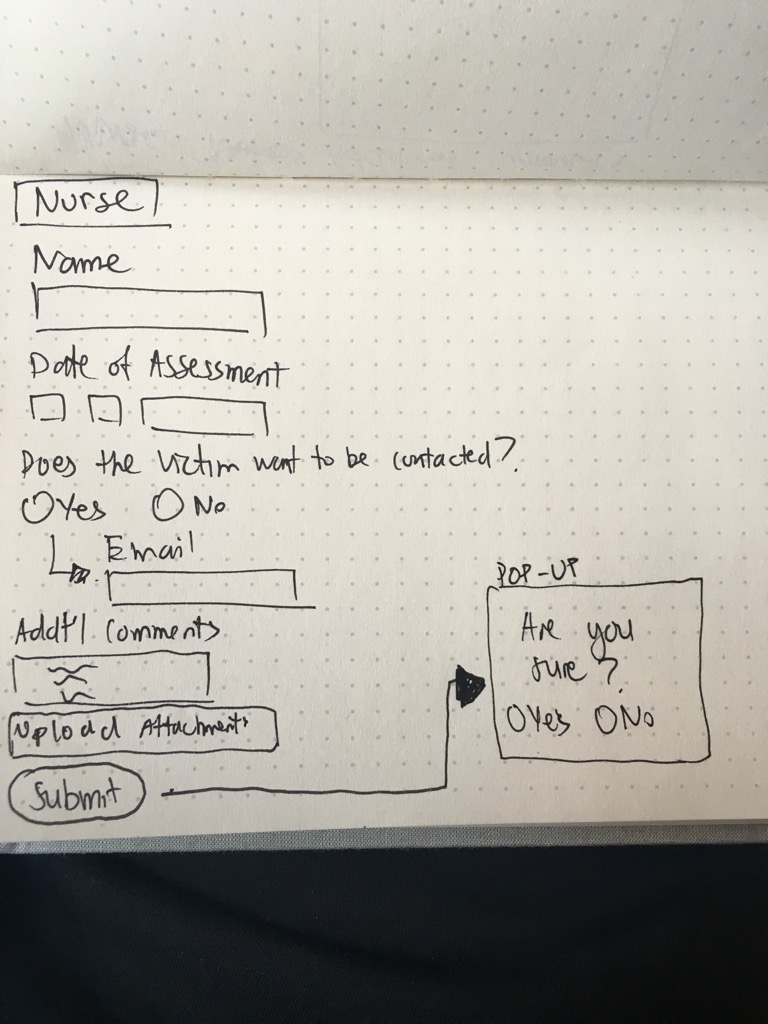 Nurse
Name
Date of Assessment
Does the victim want to be contacted?
Yes No
Email
Addt'l Comments
Upload Attachments
Submit
POP-UP
Are you
sure?
Yes No